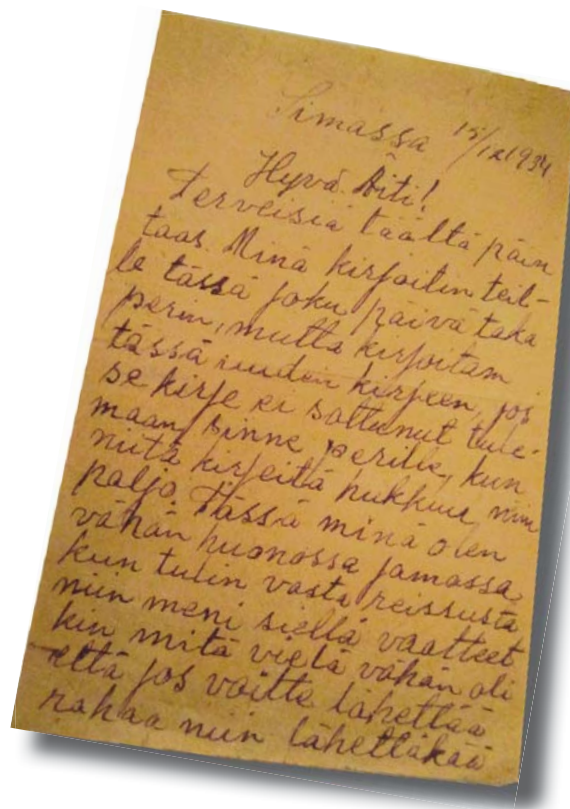 Simassa 15/IX 1934
Hyvä Äiti!
Terveisiä täältä päin
taas. Minä kirjoitin teil-
le tässä joku päivä taka
perin, mutta kirjoitam
tässä uuden kirjeen, jos
se kirje ei sattunut tule-
maan sinne perille, kun
niitä kirjeitä hukkuu niin
paljo. Tässä minä olen
vähän huonossa jamassa,
kun tulin vasta reissusta
niin meni siellä vaatteet
kin mitä vielä vähän oli
että jos voitte lähettää
rahaa niin lähettäkää